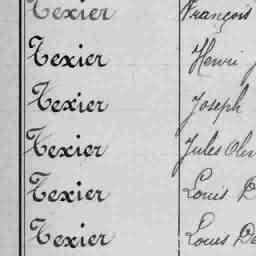 Texier François
Texier Henri J
Texier Joseph
Texier Jules
Texier Louis D
Texier Louis De